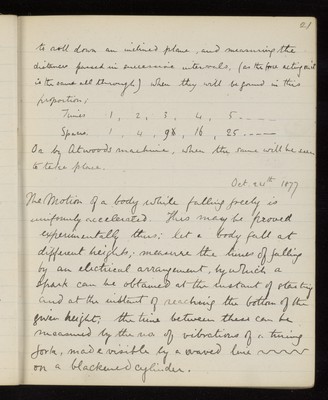 21
to roll down an inclined plane, and measuring the
distances passed in successive intervals, (as the force acting on it
is the same all through) when they will be found in this
proportion;
Times 1, 2, 3, 4, 5 ----
Spaces 1, 4, 9, 16, 25 ----
Or by Atwoods machine, when the same will be seen
to take place.
Oct 24th 1877
The Motion of a body while falling freely is
uniformly accelerated. This may be proved
experimentally thus: let a body fall at
different heights; measure the times of falling
by an electrical arrangement, by which a
spark can be obtained at the instant of starting
and at the instant of reaching the bottom of the
given height; the time between these can be
measured by the no of vibrations of a tuning
fork, made visible by a waved line
on a blackened cylinder.